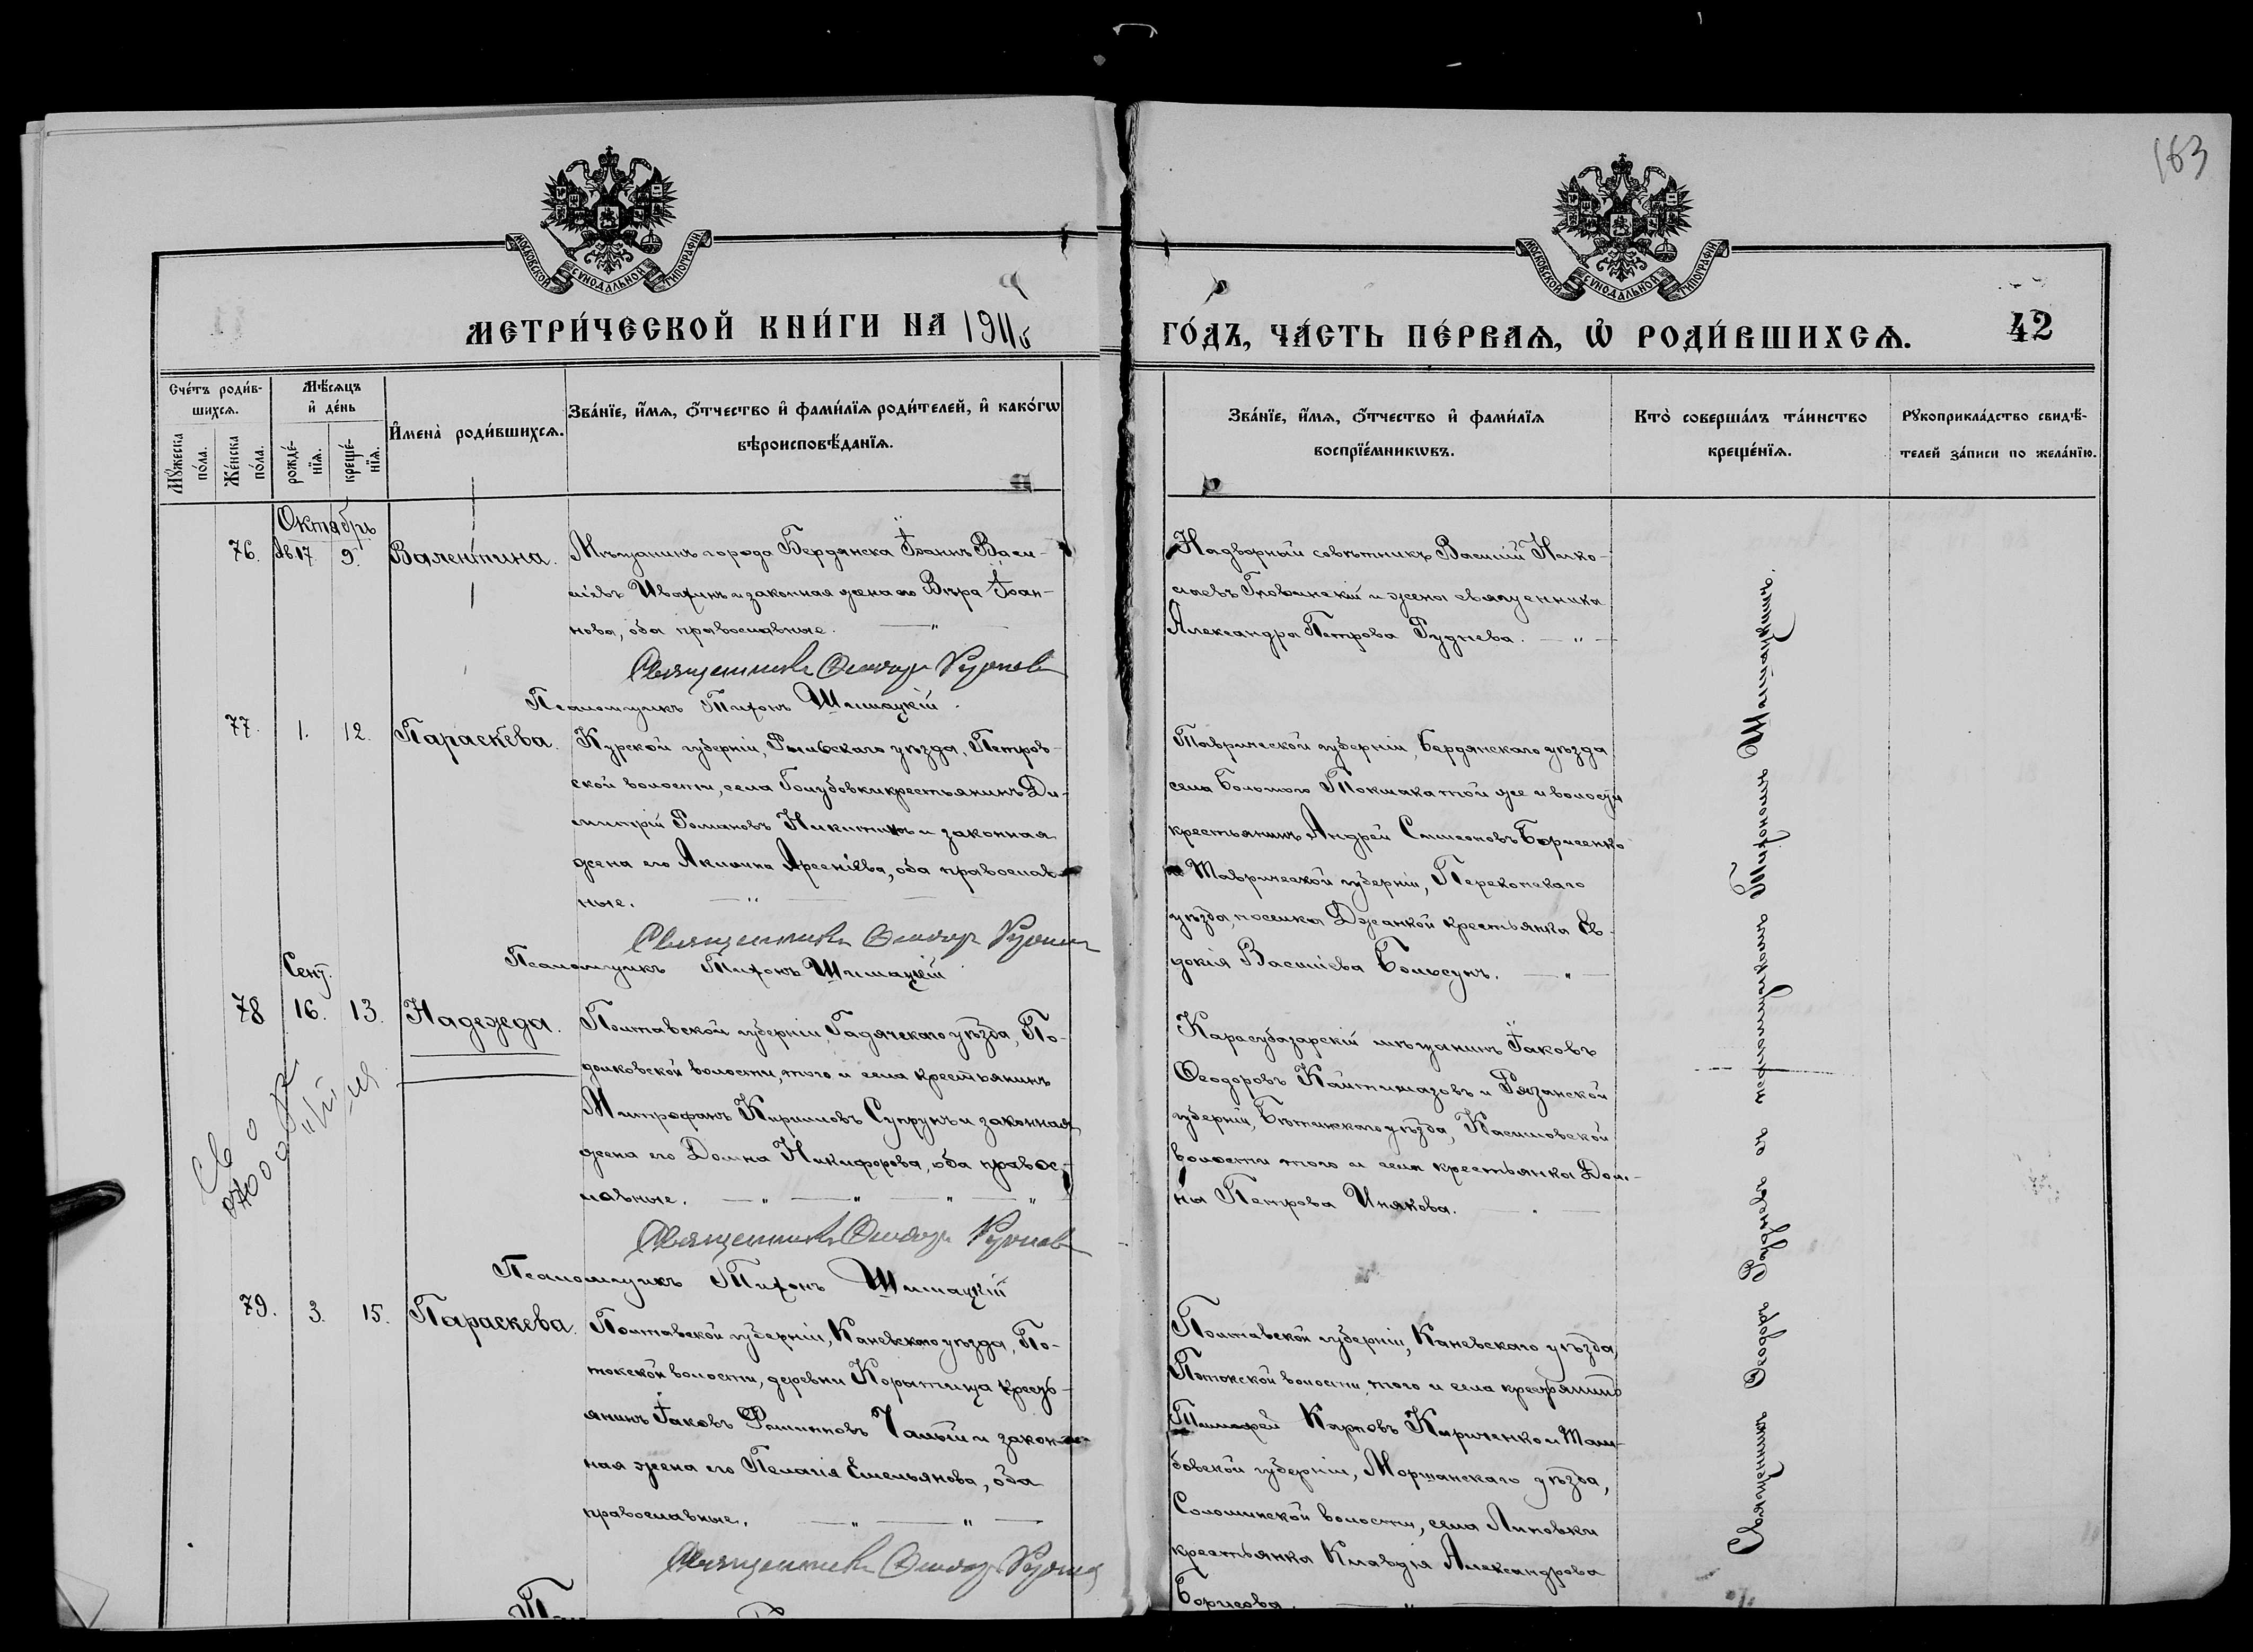 183
МОСКОВСКОЙ СѴНОДАЛЬНОЙ ТИПОГРАФІИ
МОСКОВСКОЙ СѴНОДАЛЬНОЙ ТИПОГРАФІИ
МЕТРИ́ЧЕСКОЙ КНИ́ГИ НА 191
ГО́ДЪ, ЧА́СТЬ ПЕ́РВАѦ, Ѡ҆ РОДИ́ВШИХСѦ.
42
Сче́тъ роди́в-
шихсѧ.
Мꙋ́жеска по́ла.
Же́нска по́ла.
Мѣ́сѧцъ
и҆ де́нь
рожде́-
нїѧ.
креще́-
нїѧ.
И҆мена̀ роди́вшихсѧ.
Зва́нїе, и҆́мѧ, ѻ҆́тчество и҆ фами́лїѧ роди́телей, и҆ како́гѡ
вѣроисповѣ́данїѧ.
Зва́нїе, и҆́мѧ, ѻ҆́тчество и҆ фами́лїѧ
воспрїе́мникѡвъ.
Кто̀ соверша́лъ та́инство
креще́нїѧ.
Рꙋкоприкла́дство свидѣ́-
телей за́писи по жела́нїю.
Октябрь
76. 9. Валентина.
Мѣщанинъ города Бердянска Іоаннъ Васи-
ліевъ и законная жена его Вѣра Іоан-
нова, оба православные.
Священникъ Ѳеодоръ Рудневъ
Псаломщикъ Тихонъ Шишацкій.
Надворный совѣтникъ Василій Нико-
лаевъ и жена священника
Александра Петрова Руднева.
77. 1. 12. Параскева.
Курской губерніи, Рыльскаго уѣзда, Петров-
ской волости, села Голубовки крестьянинъ Ди-
митрій Романовъ Никитинъ и законная
жена его Акилина Арсеніева, оба православ-
ные.
Священникъ Ѳеодоръ Рудневъ
Псаломщикъ Тихонъ Шишацкій
Таврической губерніи, Бердянскаго уѣзда
села Большого Токмака той же и волости
крестьянинъ Андрей Симеоновъ Борисенко
и Таврической губерніи, Перекопскаго
уѣзда, поселка Джанкой крестьянка Ев-
докія Василіева
Сент.
78 16. 13. Надежда.
Полтавской губерніи, Гадячскаго уѣзда, По-
долковской волости, того и села крестьянинъ
Митрофанъ Кирилловъ Супрунъ и законная
жена его Домна Никифорова, оба правос-
лавные.
Священникъ Ѳеодоръ Рудневъ
Псаломщикъ Тихонъ Шишацкій
Карасубазарскій мѣщанинъ Іаковъ
Ѳеодоровъ и Рязанской
губерніи, уѣзда,
волости того и села крестьянка Дом-
на Петрова Инякова.
79. 3. 15. Параскева.
Полтавской губерніи, Каневскаго уѣзда, По-
токской волости, деревни Корытища кресть-
янинъ Іаковъ Филипповъ и закон-
ная жена его Пелагія Емельянова, оба
православные.
Священникъ Ѳеодоръ Рудневъ
Полтавской губерніи, Каневскаго уѣзда,
Потокской волости, того и села крестьянинъ
Тимофей Карповъ Кириченко и Там-
бовской губерніи, Моршанскаго уѣзда,
волости, села Липовки
крестьянка Клавдія Александрова
Борисова.
Священникъ Ѳеодоръ Рудневъ съ псаломщикомъ Тихономъ Шишацкимъ.